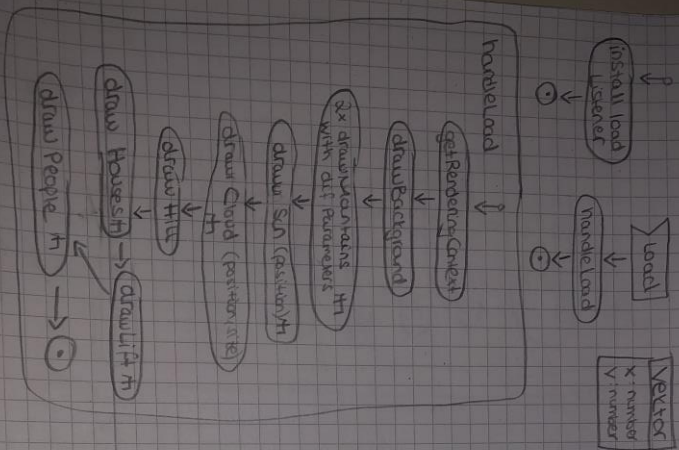 install load
Listener
Load
handleLoad
Vektor
x: number
y: number
handleLoad
getRenderingContext
drawBackground
2x drawMountains
with dif Parameters
draw Sun (position)
draw Cloud (position, size)
draw Hill
draw Houses
draw Lift
draw People